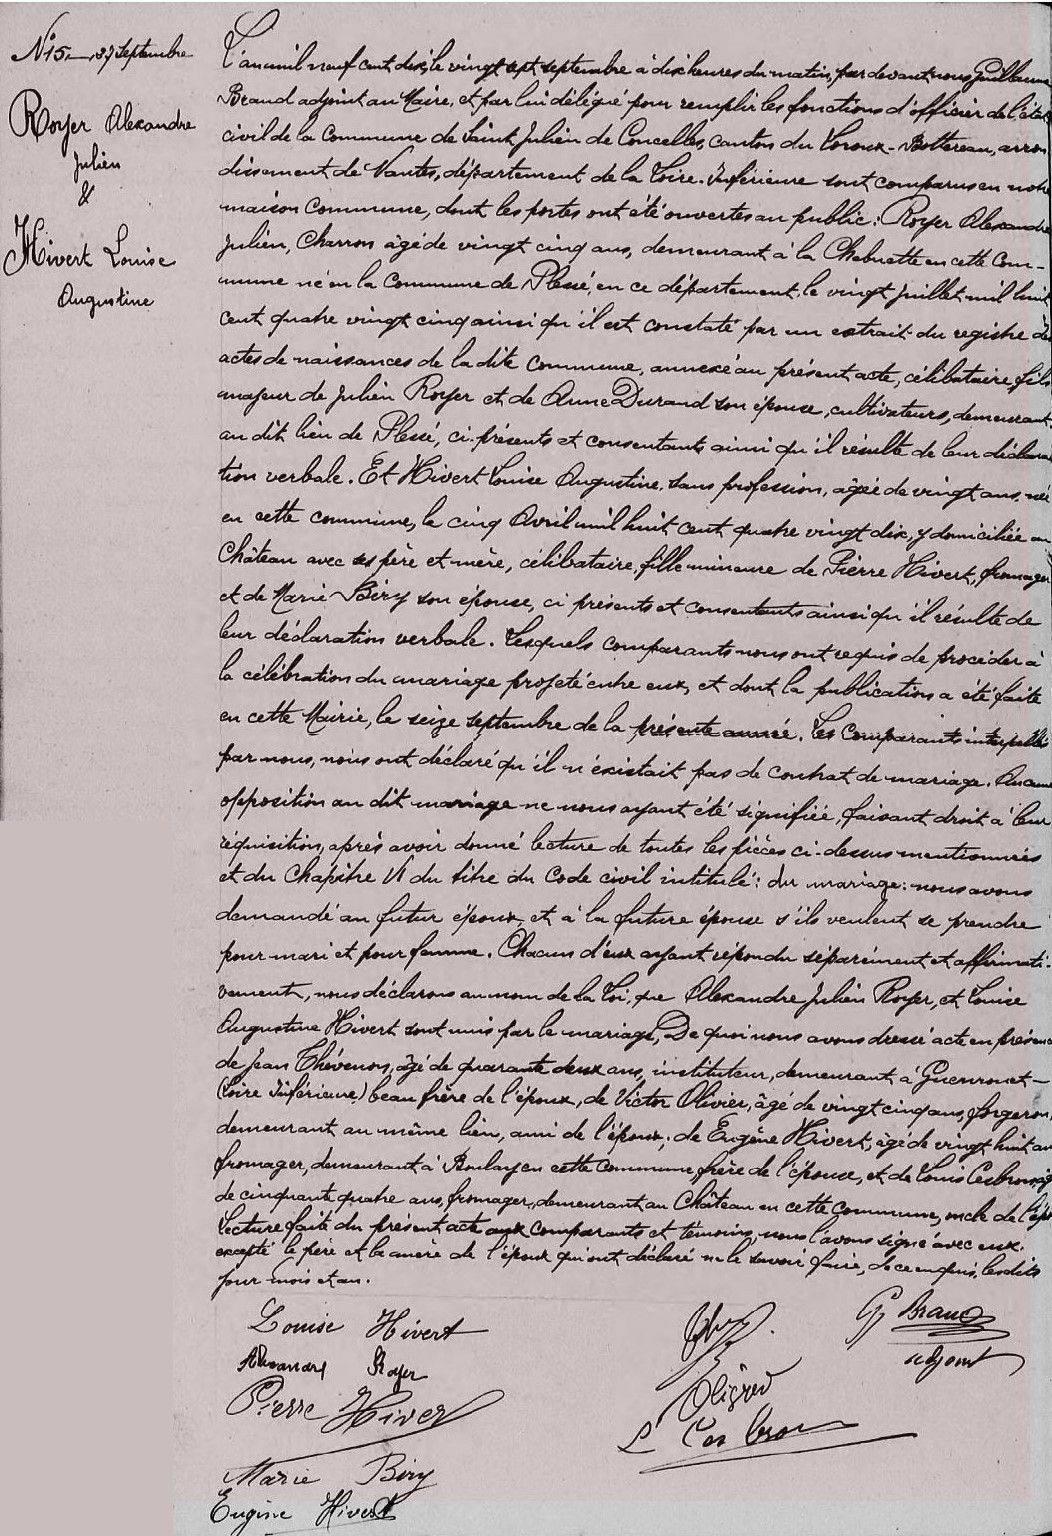 N 15 — 27 Septembre
Royer Alexandre
Julien
&
Hivert Louise
Augustine
L'an mil neuf cent dix, le vingt sept septembre à dix heures du matin, par devant nous Guillaume
Braud adjoint au Maire, et par lui délégué pour remplir les fonctions d'officier de l'état
civil de la Commune de Saint Julien de Concelles, canton du Loroux-Bottereau, arron
dissement de Nantes, département de la Loire-Inférieure sont comparus en notre
maison Commune, dont les portes ont été ouvertes au public : Royer Alexandre
Julien, Charron âgé de vingt cinq ans, demeurant à la Chebuette en cette Com-
mune né en la Commune de Plessé, en ce département, le vingt juillet mil huit
cent quatre vingt cinq ainsi qu'il est constaté par un extrait du registre des
actes de naissances de la dite commune, annexé au présent acte, célibataire, fils
majeur de Julien Royer et de Anne Durand son épouse, cultivateurs, demeurant
au dit lieu de Plessé, ci-présents et consentants ainsi qu'il résulte de leur déclara
tion verbale. Et Hivert Louise Augustine, sans profession, âgée de vingt ans, née
en cette commune, le cinq Avril mil huit cent quatre vingt dix, y domiciliée au
Château avec ses père et mère, célibataire, fille mineure de Pierre Hivert, fromager
et de Marie Biry son épouse, ci présents et consentants ainsi qu'il résulte de
leur déclaration verbale. Lesquels comparants nous ont requis de procéder à
la célébration du mariage projeté entre eux, et dont la publication a été faite
en cette Mairie, le seize septembre de la présente année. Les Comparants interpellés
par nous, nous ont déclaré qu'il n'existait pas de contrat de mariage. Aucune
opposition au dit mariage ne nous ayant été signifiée, faisant droit à leur
réquisition, après avoir donné lecture de toutes les pièces ci-dessus mentionnées
et du Chapitre VI du titre du Code civil intitulé : du mariage : nous avons
demandé au futur époux et à la future épouse s'ils veulent se prendre
pour mari et pour femme. Chacun d'eux ayant répondu séparément et affirmati-
vement, nous déclarons au nom de la Loi, que Alexandre Julien Royer, et Louise
Augustine Hivert sont unis par le mariage, De quoi nous avons dressé acte en présence
de Jean Thévenon, âgé de quarante deux ans, instituteur, demeurant à Guenrouet —
(Loire Inférieure) beau frère de l'époux, de Victor Olivier, âgé de vingt cinq ans, forgeron,
demeurant au même lieu, ami de l'époux, de Eugène Hivert, âgé de vingt huit ans
fromager, demeurant à Boulay en cette commune, frère de l'épouse, et de Louis Cesbron, âgé
de cinquante quatre ans, fromager, demeurant au Château en cette commune, oncle de l'ép
Lecture faite du présent acte aux comparants et témoins, nous l'avons signé avec eux.
excepté le père et la mère de l'époux qui ont déclaré ne le savoir faire, de ce enquis, lesdits
jour mois et an.
Louise Hivert
G Braud
adjoint
Alexandre Royer
Pierre Hivert
Olivier
L Cesbron
Marie Biry
Eugène Hivert